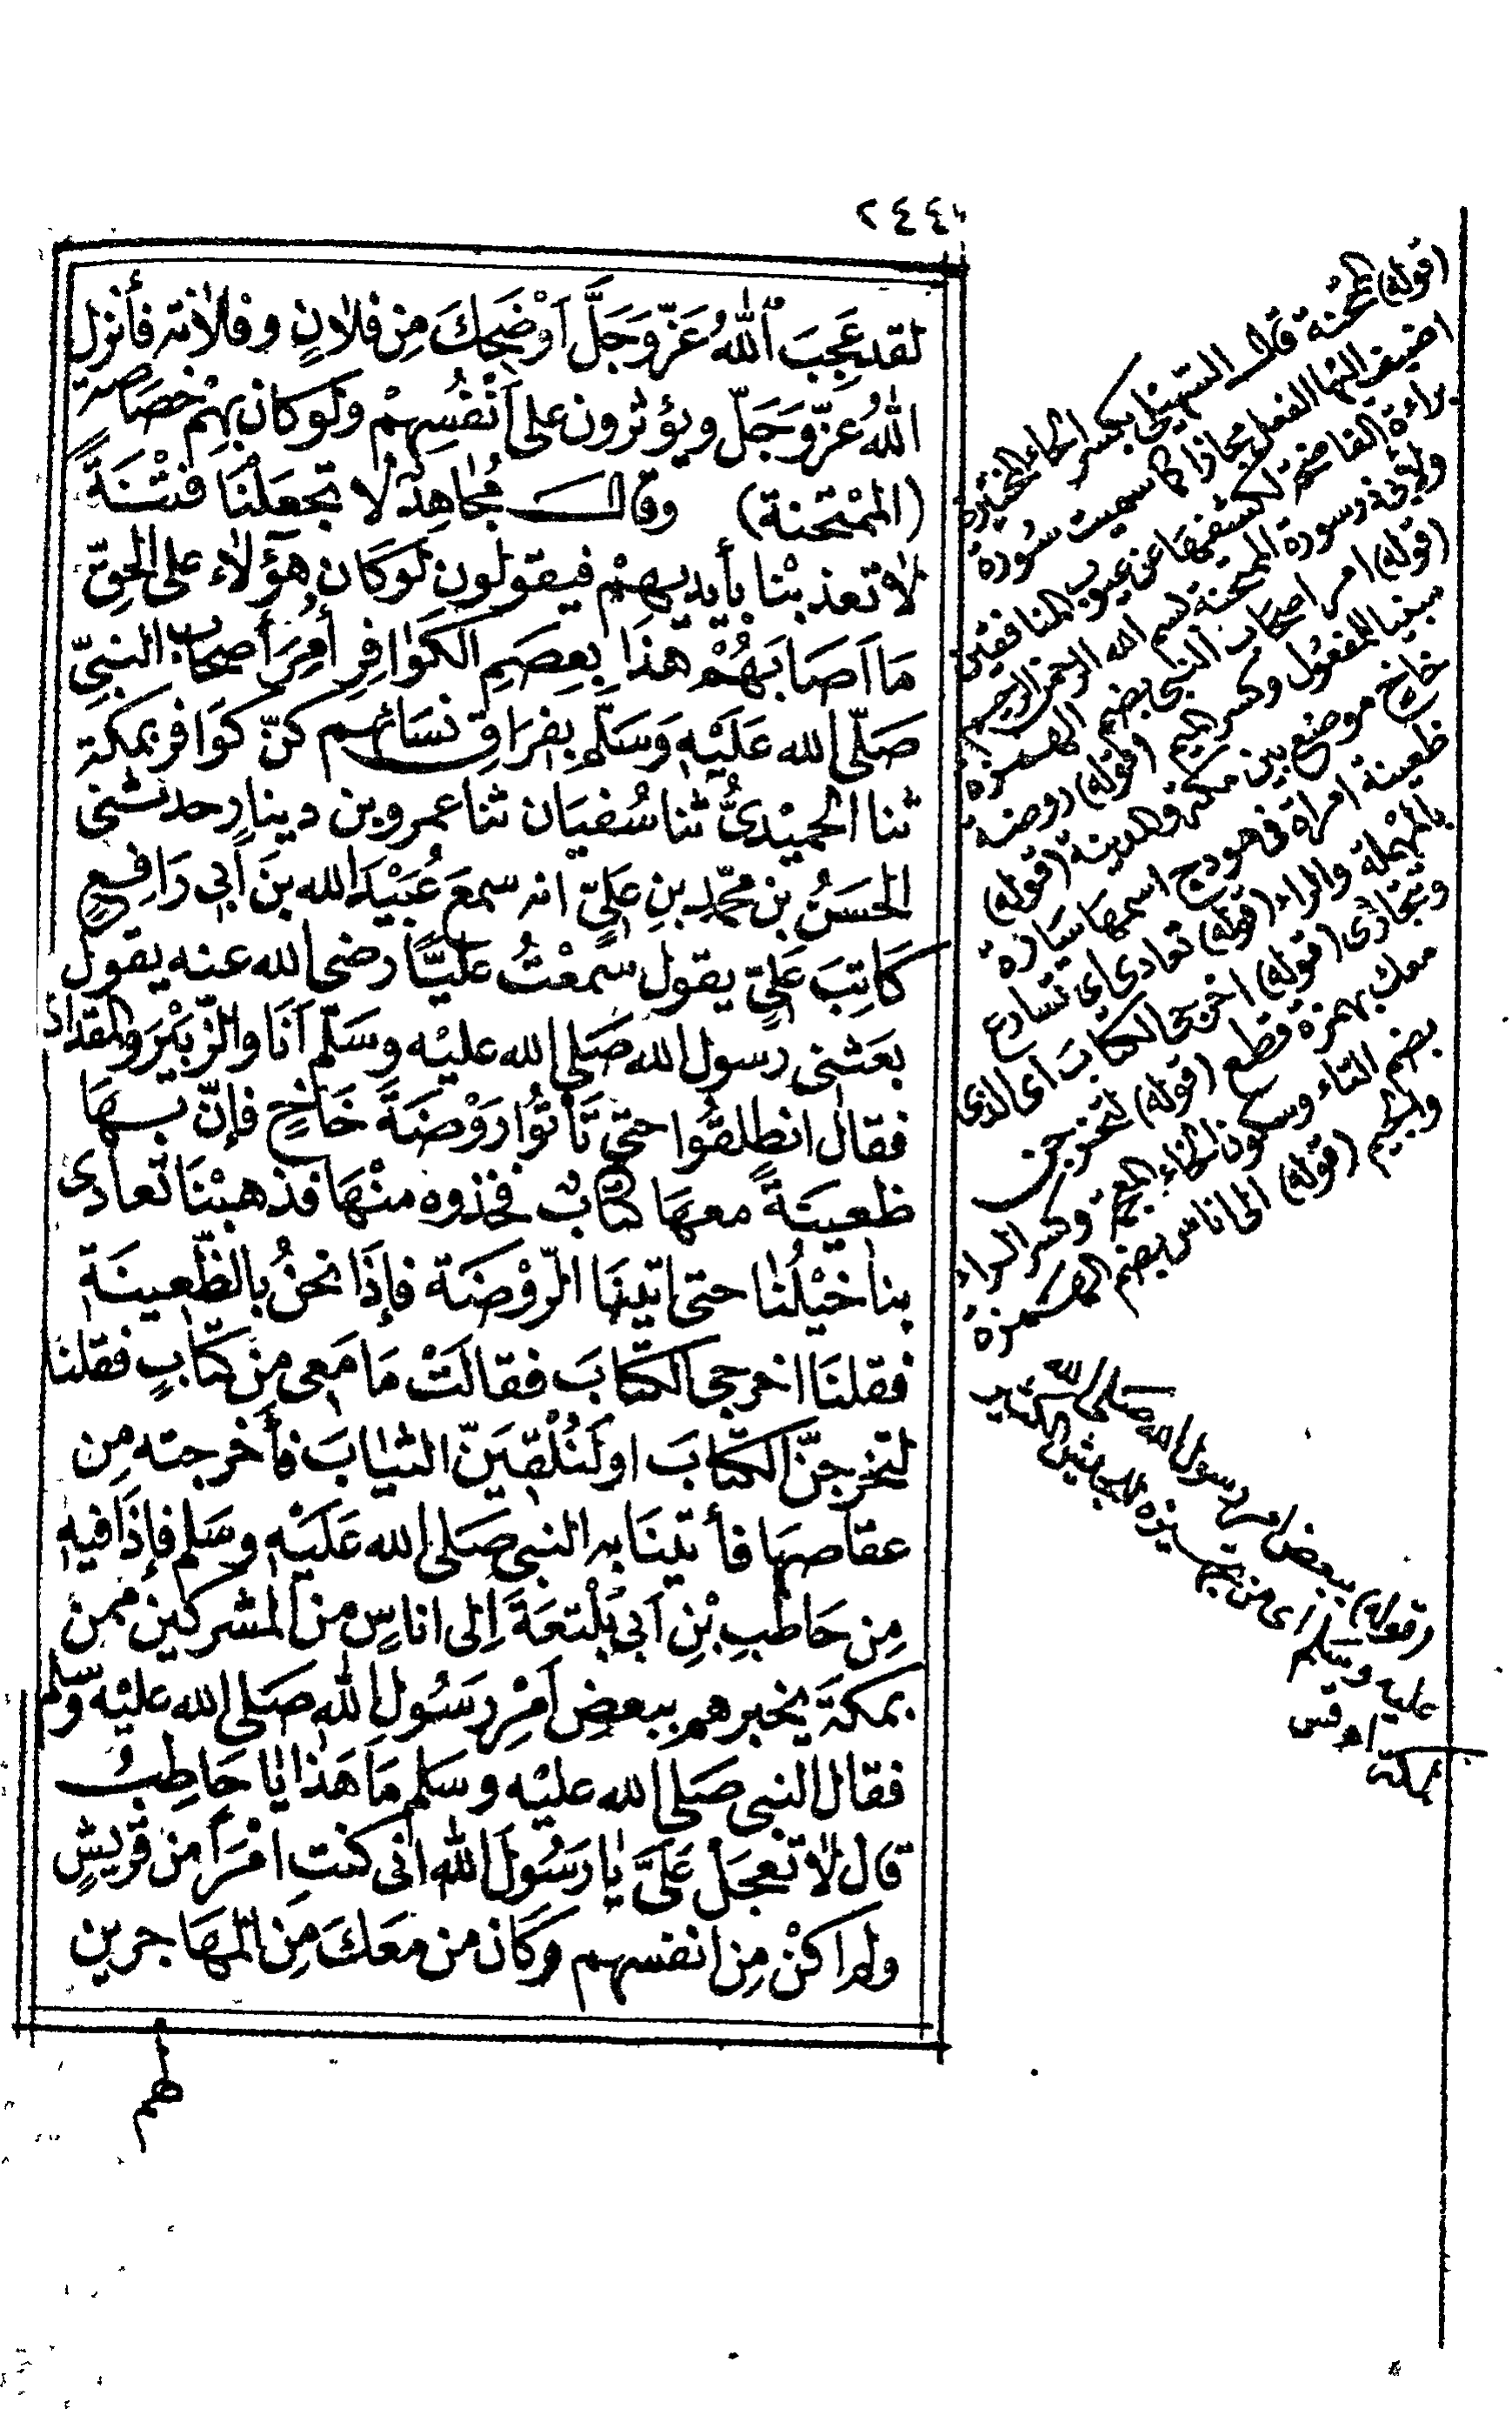 ٢٤٤
لقد عَجِبَ ٱللهُ عَزَّ وَجَلَّ اَوْضَحِكَ مِن فلانٍ وفلانة فأنزل
اللهُ عزّ وَجَلّ ويؤثرون على اَنْفُسِهِمْ ولوكان بِهِمْ خصَاصة
(الممْتحنة) وقال مُجاهِدٌ لا تجعَلْنَا فتْنَةً
لا تعذبْنا بأيديهِمْ فيقولون لوكَان هؤلاء على الحقّ
مَا اَصَابَهُمْ هذا بِعِصَمِ الكوَافِرِ أُمِرَ أصحَابُ النبيّ
صَلّى الله عَلَيْهِ وَسَلَّم بِفرَاقِ نسَائهم كنّ كوَافر بمكة
ثنا الحمَيْدىُّ ثنا سُفيَان ثنا عمرو بن دينار حدثنى
الحَسَنُ بن محمّدِ بنِ عَلِيٍّ انه سمعَ عُبَيْدَ الله بنَ اَبِى رَافِعٍ
كَاتِبَ عَلِيٍّ يقول سمعْتُ عليًّا رضى الله عنه يقول
بعَثنى رسول الله صَلى الله عليْه وسَلَّم اَنَا والزّبَيْرَ والمقدَادَ
فقال انطلقُوا حتى تَأتُوا رَوْضَةَ خَاخٍ فإنّ بهَا
ظعينَةً معهَا كتَابٌ فخذوه منْهَا فذهبْنَا تعادى
بنا خَيْلُنا حتى اتينَا الرّوْضَة فإذَا نحنُ بالظّعينَة
فقلنَا اخرجى الكتابَ فقالَتْ مَا مَعِى مِن كتَابٍ فقلنَا
لتخرجنّ الكتَابَ اولَنُلْقِيَنّ الثيابَ فأخرجته مِن
عقاصهَا فأتينَا به النبى صَلى الله عَلَيْه وسَلم فإذَا فيه
مِن حَاطبِ بْنِ اَبِى بَلْتعَةَ اِلى اناسٍ من المشركين ممن
بمكةَ يخبرهم ببعض اَمْرِ رَسُولِ الله صَلى الله عليْه وسّلم
فقال النبى صَلى الله عليْه وسَلم مَا هَذا يا حَاطِبُ
قال لا تعجَل عَلَىَّ يا رَسُولَ الله انى كنت امْرَأً من قريشٍ
ولم اكنْ مِن انفسهم وكَان من معَكَ مِن المهَاجرين
لهم
(قوله) الممتحنة قال السهيلى بكسر الحاء المختبرة
اضيف اليها الفعل مجازا كما سميت سُورة
براءة الفاضحة لكشفها عن عيوب المنافقين
ولابى ذر سورة الممتحنة بسم الله الرحمن الرحيم
(قوله) امر اصحاب النبى بضم الهمزة
مبنيا للمفعول وكسر الميم (قوله) روضة
خاخ موضع بين مكة والمدينة (قوله)
ظعينة امراة فى هودج اسمها سَارة
بالمهْملة والراء (قوله) تعادى اى تتسارع
وتتجارى (قوله) اخرجى الكتابَ اى الذى
معك بهمزة قطع (قوله) لتخرجن
بضم التاء وسكون الخاء المعجمة وكسر الراء
والجيم (قوله) الى اناس بضم الهمزة
(قوله) ببعض امر رسول الله صَلى الله
عليه وسَلم اى من تجهيزه للجيش الكثير
لمكة اه قس